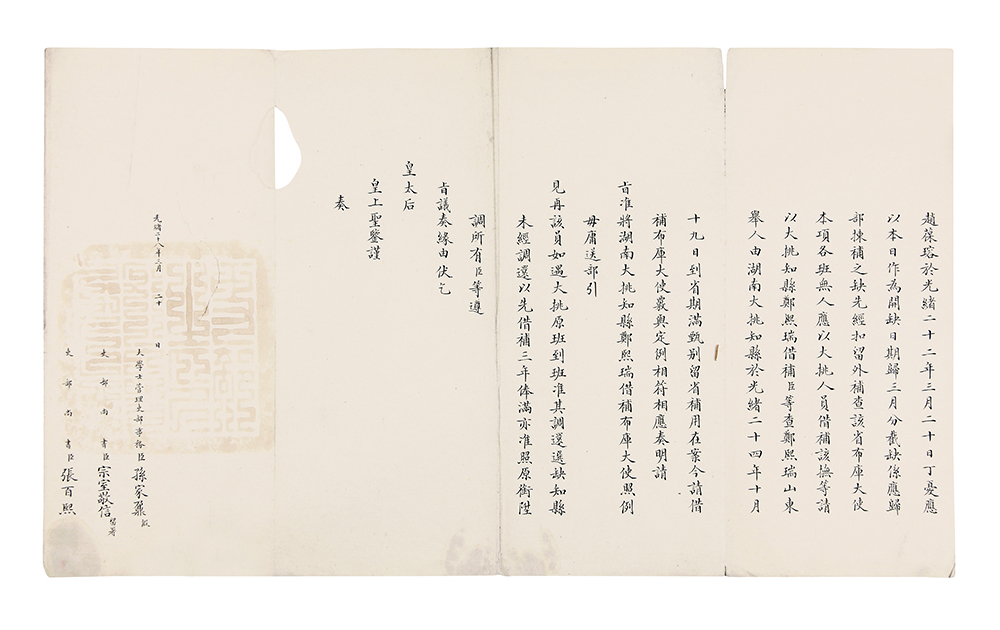 趙葆瑢於光緒二十二年三月二十日丁憂應
以本日作為開缺日期歸三月分截缺係應歸
部揀補之缺先經扣留外補查該省布庫大使
本項各班無人應以大挑人員借補該撫等請
以大挑知縣鄭熙瑞借補臣等查鄭熙瑞山東
舉人由湖南大挑知縣於光緒二十四年十月
十九日到省期滿甄別留省補用在案今請借
補布庫大使覈與定例相符相應奏明請
旨准將湖南大挑知縣鄭熙瑞借補布庫大使照例
毋庸送部引
見再該員如遇大挑原班到班准其調選選缺知縣
未經調選以先借補三年俸滿亦准照原銜陞
調所有臣等遵
旨議奏緣由伏乞
皇太后
皇上聖鑒謹
奏
光緒二十八年三月 二十 日
大學士管理吏部事務臣孫家鼐
吏部尚書臣宗室敬信
吏部尚書臣張百熙